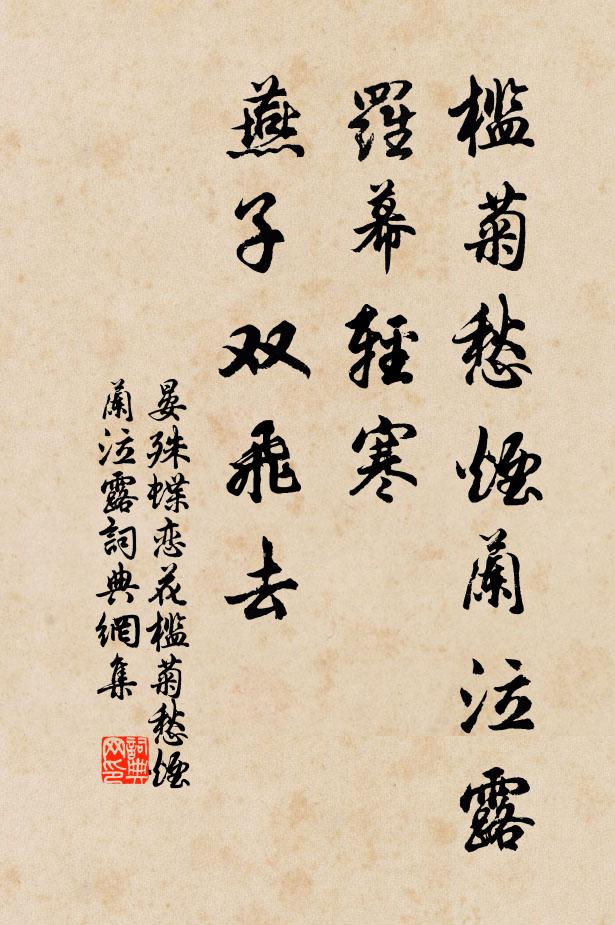 檻菊愁煙蘭泣露
羅幕輕寒
燕子双飛去
晏殊蝶恋花檻菊愁煙
蘭泣露詞典網集
詞典网印